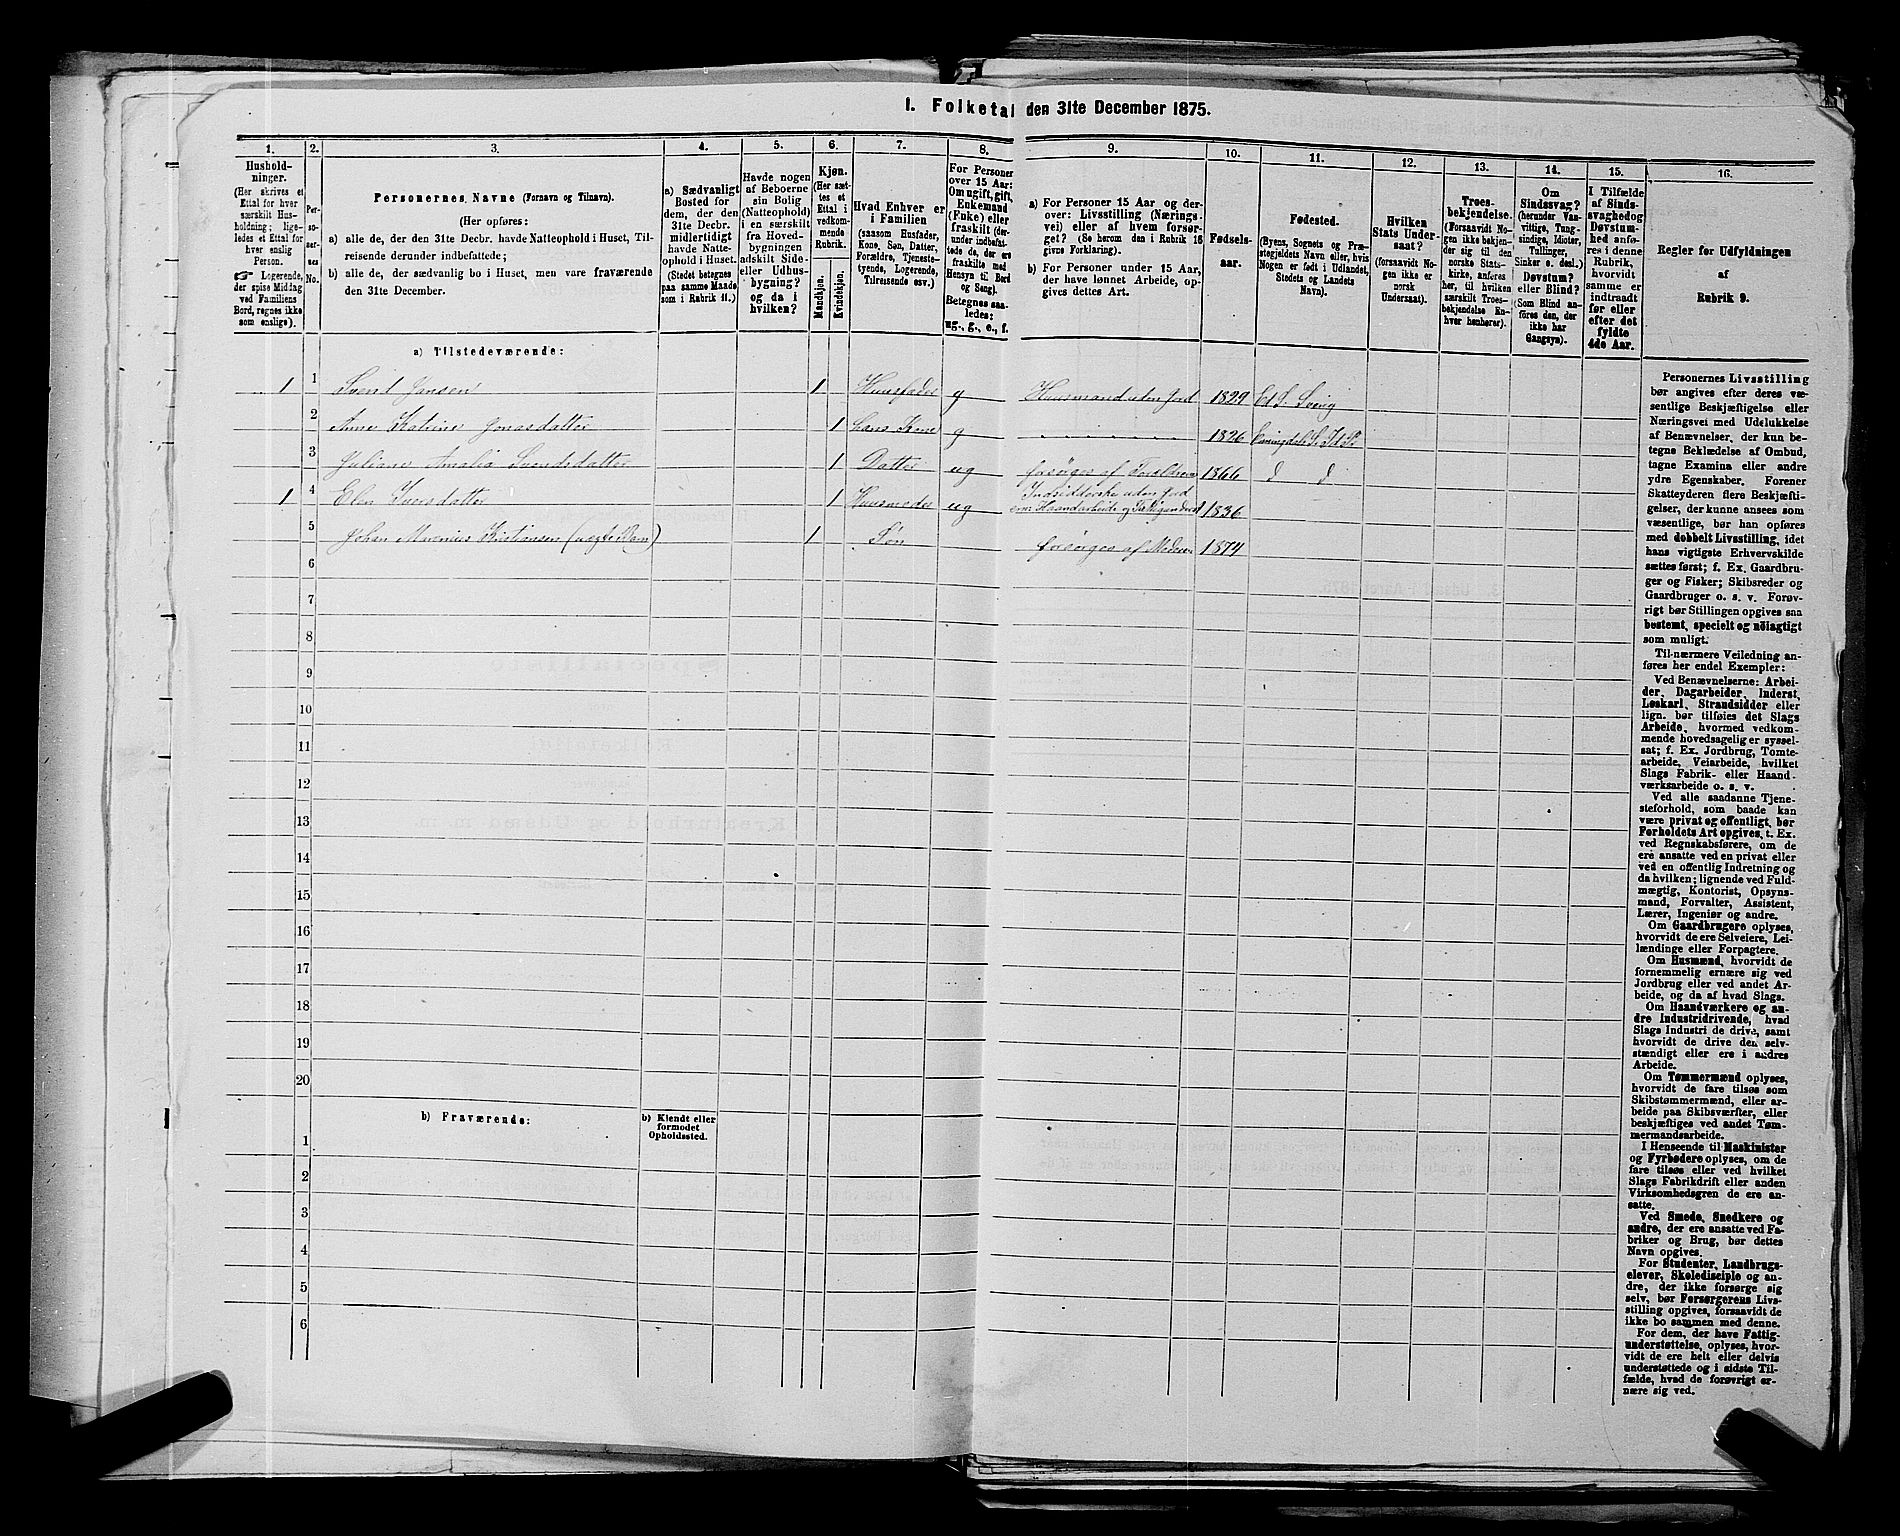 1. Folketal den 31te December 1875.
1. 2. 3. 4. 5. 6. 7. 8. 9. 10. 11. 12. 13. 14. 15. 16.
Hushold-
ninger.
(Her skrives et
Ettal for hver
særskilt Hus-
holdning; lige-
ledes et Ettal for
hver enslig
Person.
☞ Logerende,
der spise Middag
ved Familiens
Bord, regnes ikke
som enslige).
Per-
so-
ner-
nes
No.
Personernes Navne (Fornavn og Tilnavn).
(Her opføres:
a) alle de, der den 31te Decbr. havde Natteophold i Huset, Til-
reisende derunder indbefattede;
b) alle de, der sædvanlig bo i Huset, men vare fraværende
den 31te December.
a) Sædvanligt
Bosted for
dem, der den
31te Decbr.
midlertidigt
havde Natte-
ophold i Huset.
(Stedet betegnes
paa samme Maade
som i Rubrik 11.)
Havde nogen
af Beboerne
sin Bolig
(Natteophold)
i en særskilt
fra Hoved-
bygningen
adskilt Side-
eller Udhus-
bygning?
og da i
hvilken?
Kjøn.
(Her sæt-
tes et
Ettal i
vedkom-
mende
Rubrik.
Mandkjøn.
Kvindekjøn.
Hvad Enhver er
i Familien
(saasom Husfader,
Kone, Søn, Datter,
Forældre, Tjeneste-
tyende, Logerende,
Tilreisende osv.)
For Personer
over 15 Aar:
Om ugift, gift,
Enkemand
(Enke) eller
fraskilt (der-
under indbefat-
tede de, der ere
fraskilte med
Hensyn til Bord
og Seng).
Betegnes saa-
ledes:
ug., g., e., f.
a) For Personer 15 Aar og der-
over: Livsstilling (Nærings-
vei) eller af hvem forsør-
get? (Se herom den i Rubrik 16
givne Forklaring).
b) For Personer under 15 Aar,
der have lønnet Arbeide, op-
gives dettes Art.
Fødsels-
aar.
Fødested.
(Byens, Sognets og Præ-
stegjeldets Navn eller, hvis
Nogen er født i Udlandet,
Stedets og Landets
Navn).
Hvilken
Stats Under-
saat?
(forsaavidt No-
gen ikke er
norsk
Undersaat).
Troes-
bekjendelse.
(Forsaavidt No-
gen ikke bekjen-
der sig til den
norske Stats-
kirke, anføres
her, til hvilken
særskilt Troes-
bekjendelse En-
hver henhører).
Om
Sindssvag?
(herunder Van-
vittige, Tung-
sindige, Idioter,
Tullinger,
Sinker o. desl.)
Døvstum?
eller Blind?
(Som Blind an-
føres den, der
ikke har
Gangsyn).
I Tilfælde
af Sinds-
svaghed og
Døvstum-
hed anfø-
res i denne
Rubrik,
hvorvidt
samme er
indtraadt
før eller
efter det
fyldte
4de Aar.
Regler for Udfyldningen
af
Rubrik 9.
a) Tilstedeværende:
1 1 Svent Jansen 1 Huusfader g Huusmand uden Jord 1829 Ed S. Sverig
2 Anne Katrine Jonasdatter 1 hans Kone g 1826 Enningdals S. Ids P.
3 Juliane Amalia Svendsdatter 1 Datter ug forsørges af Forældrene 1866 d d
1 4 Elen Iversdatter 1 Huusmoder ug Indsidderske uden Jord
Haandarbeide og Fattigunderst 1836
5 Johan Marenius Kristiansen (uægte Barn) 1 Søn forsørges af Moderen 1874
6
7
8
9
10
11
12
13
14
15
16
17
18
19
20
b) Fraværende:
b) Kjendt eller
formodet
Opholdssted.
1
2
3
4
5
6
Personernes Livsstilling
bør angives efter deres væ-
sentlige Beskjæftigelse eller
Næringsvei med Udelukkelse
af Benævnelser, der kun be-
tegne Beklædelse af Ombud,
tagne Examina eller andre
ydre Egenskaber. Forener
Skatteyderen flere Beskjæfti-
gelser, der kunne ansees som
væsentlige, bør han opføres
med dobbelt Livsstilling, idet
hans vigtigste Erhvervskilde
sættes først; f. Ex. Gaardbru-
ger og Fisker; Skibsreder og
Gaardbruger o. s. v. Forøv-
rigt bør Stillingen opgives saa
bestemt, specielt og nøiagtigt
som muligt.
Til nærmere Veiledning an-
føres her endel Exempler:
Ved Benævnelserne: Arbei-
der, Dagarbeider, Inderst,
Løskarl, Strandsidder eller
lign. bør tilføies det Slags
Arbeide, hvormed vedkom-
mende hovedsagelig er syssel-
sat; f. Ex. Jordbrug, Tomte-
arbeide, Veiarbeide, hvilket
Slags Fabrik- eller Haand-
værksarbeide o. s. v.
Ved alle saadanne Tjene-
steforhold, som baade kan
være privat og offentligt, bør
Forholdets Art opgives, t. Ex.
ved Regnskabsførere, om de
ere ansatte ved en privat eller
ved en offentlig Indretning og
da hvilken; lignende ved Fuld-
mægtig, Kontorist, Opsyns-
mand, Forvalter, Assistent,
Lærer, Ingeniør og andre.
Om Gaardbrugere oplyses,
hvorvidt de ere Selveiere, Lei-
lændinge eller Forpagtere.
Om Husmænd, hvorvidt de
fornemmelig ernære sig ved
Jordbrug eller ved andet Ar-
beide, og da af hvad Slags.
Om Haandværkere og an-
dre Industridrivende, hvad
Slags Industri de drive, samt
hvorvidt de drive den selv-
stændigt eller ere i andres
Arbeide.
Om Tømmermænd oplyses,
hvorvidt de fare tilsøs som
Skibstømmermænd, eller ar-
beide paa Skibsværfter, eller
beskjæftiges ved andet Tøm-
mermandsarbeide.
I Henseende til Maskinister
og Fyrbødere oplyses, om de
fare tilsøs eller ved hvilket
Slags Fabrikdrift eller anden
Virksomhedsgren de ere an-
satte.
Ved Smede, Snedkere og
andre, der ere ansatte ved Fa-
briker og Brug, bør dettes
Navn opgives.
For Studenter, Landbrugs-
elever, Skoledisciple og an-
dre, der ikke forsørge sig
selv, bør Forsørgerens Livs-
stilling opgives, forsaavidt de
ikke bo sammen med denne.
For dem, der have Fattig-
understøttelse, oplyses, hvor-
vidt de ere helt eller delvis
understøttede og i sidste Til-
fælde, hvad de forøvrigt er-
nære sig ved.